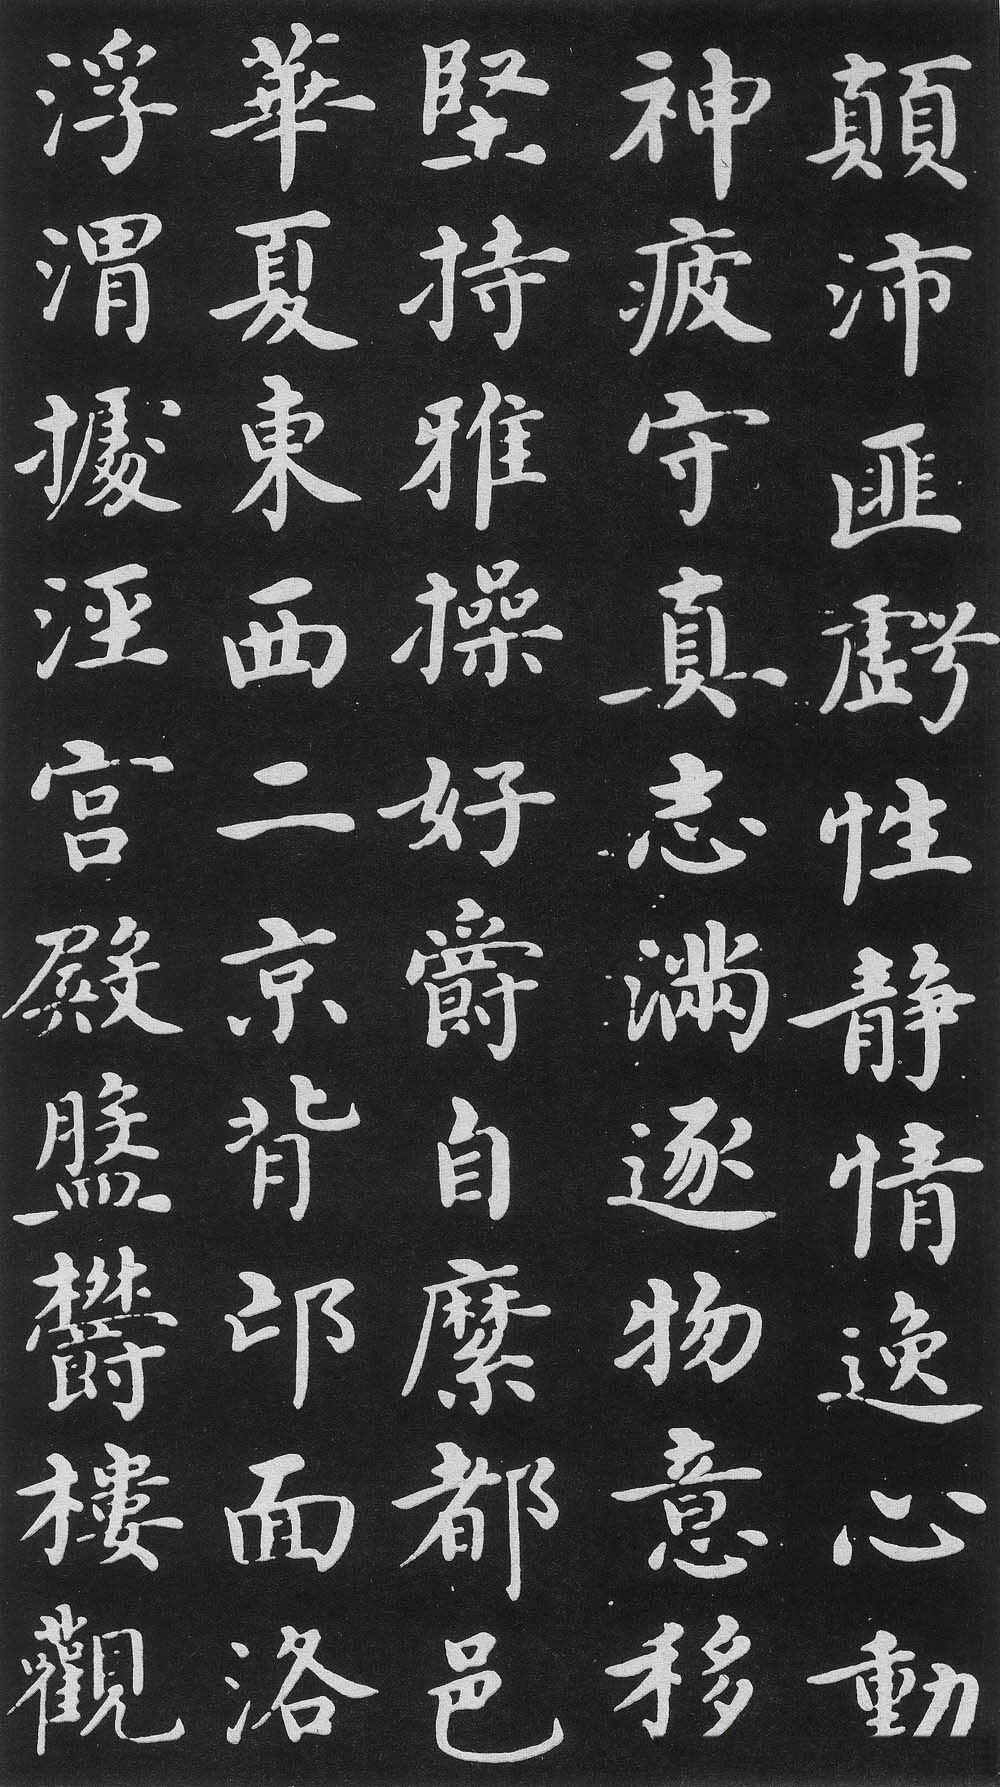 顛沛匪虧性靜情逸心動
神疲守真志滿逐物意移
堅持雅操好爵自縻都邑
華夏東西二京背邙面洛
浮渭據涇宮殿盤欝樓觀